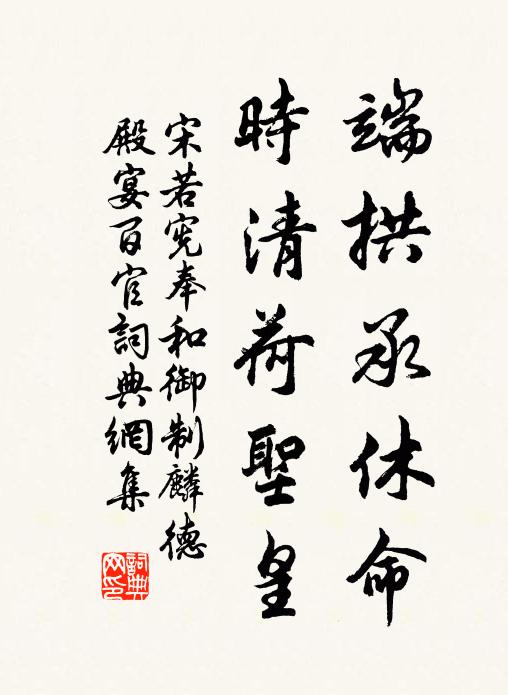 端拱承休命
時清荷聖皇
宋若宪奉和御制麟德
殿宴百官詞典網集
詞典
网印